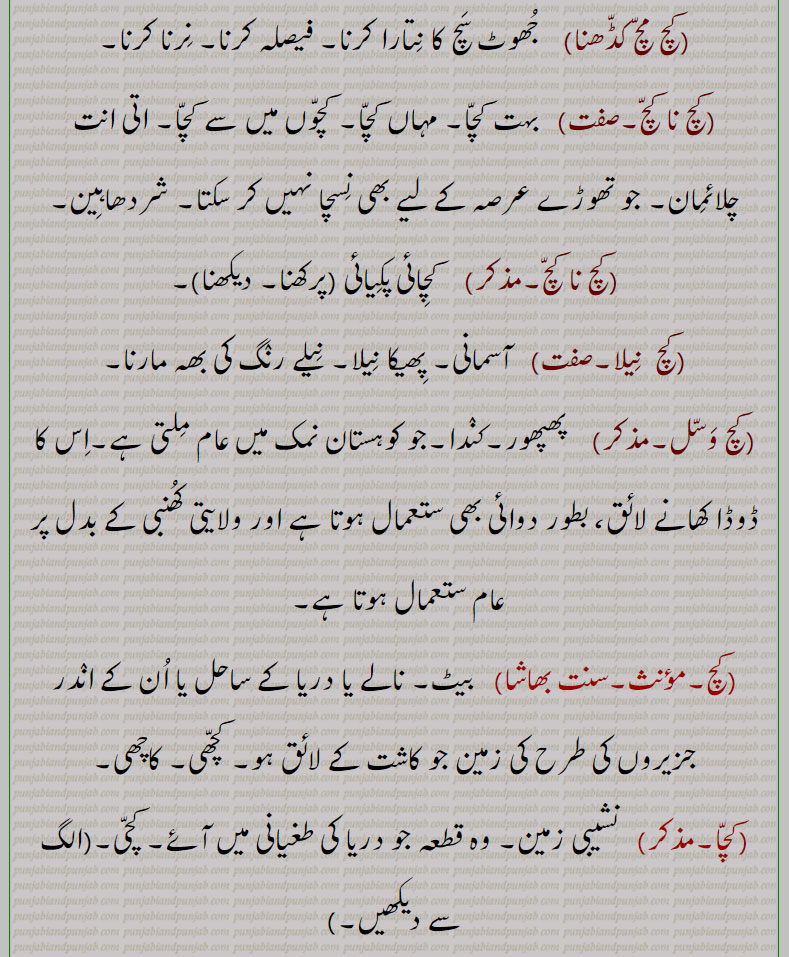 (کچ مچّ کڈّھنا) جُھوٹ سَچ کا نِتارا کرنا۔ فیصلہ کرنا۔ نِرنا کرنا۔
(کچ نا کچّ۔صفت) بہت کچّا۔ مہاں کچّا۔ کچّوں میں سے کچّا۔ اتی انت
چلائمان۔ جو تھوڑے عرصہ کے لیے بھی نِسچا نہیں کر سکتا۔ شردھاہِین۔
(کچ نا کچّ۔مذکر) کچِائی پکِیائی (پرکھنا۔ دیکھنا)۔
(کچ نِیلا۔صفت) آسمانی۔ پِھیکا نِیلا۔ نِیلے رنگ کی بھہ مارنا۔
(کچ وَسّل۔مذکر) پھپھور۔کنْدا۔جو کوہستان نمک میں عام مِلتی ہے۔اِس کا
ڈوڈا کھانے لائق، بطور دوائی بھی ستعمال ہوتا ہے اور ولایتی کُھنبی کے بدل پر
عام ستعمال ہوتا ہے۔
(کچ۔مؤنث۔سنت بھاشا) بیٹ۔ نالے یا دریا کے ساحل یا اُن کے انْدر
جزیروں کی طرح کی زمین جو کاشت کے لائق ہو۔ کچّھی۔ کاچھی۔
(کچّا۔مذکر) نشیبی زمین۔ وہ قطعہ جو دریا کی طغیانی میں آئے۔ کچّی۔(الگ
سے دیکھیں۔)